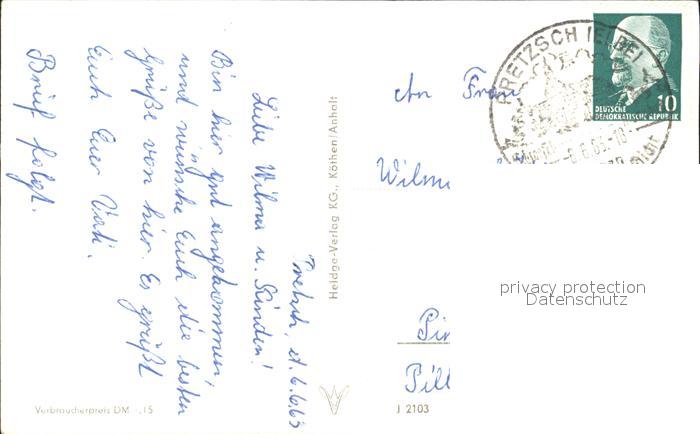 Pretzsch, d. 6.6.63
Liebe Wilma u. Kinder!
Bin hier gut angekommen,
und wünsche Euch die besten
Grüße von hier. Es grüßt
Euch Euer Vati.
Brief folgt.
Verbraucherpreis DM -,15
Heldge-Verlag KG., Köthen/Anhalt
An Frau
Wilm
Pir
Pill
J 2103
PRETZSCH (ELBE)
DEUTSCHE
DEMOKRATISCHE REPUBLIK
10
privacy protection
Datenschutz